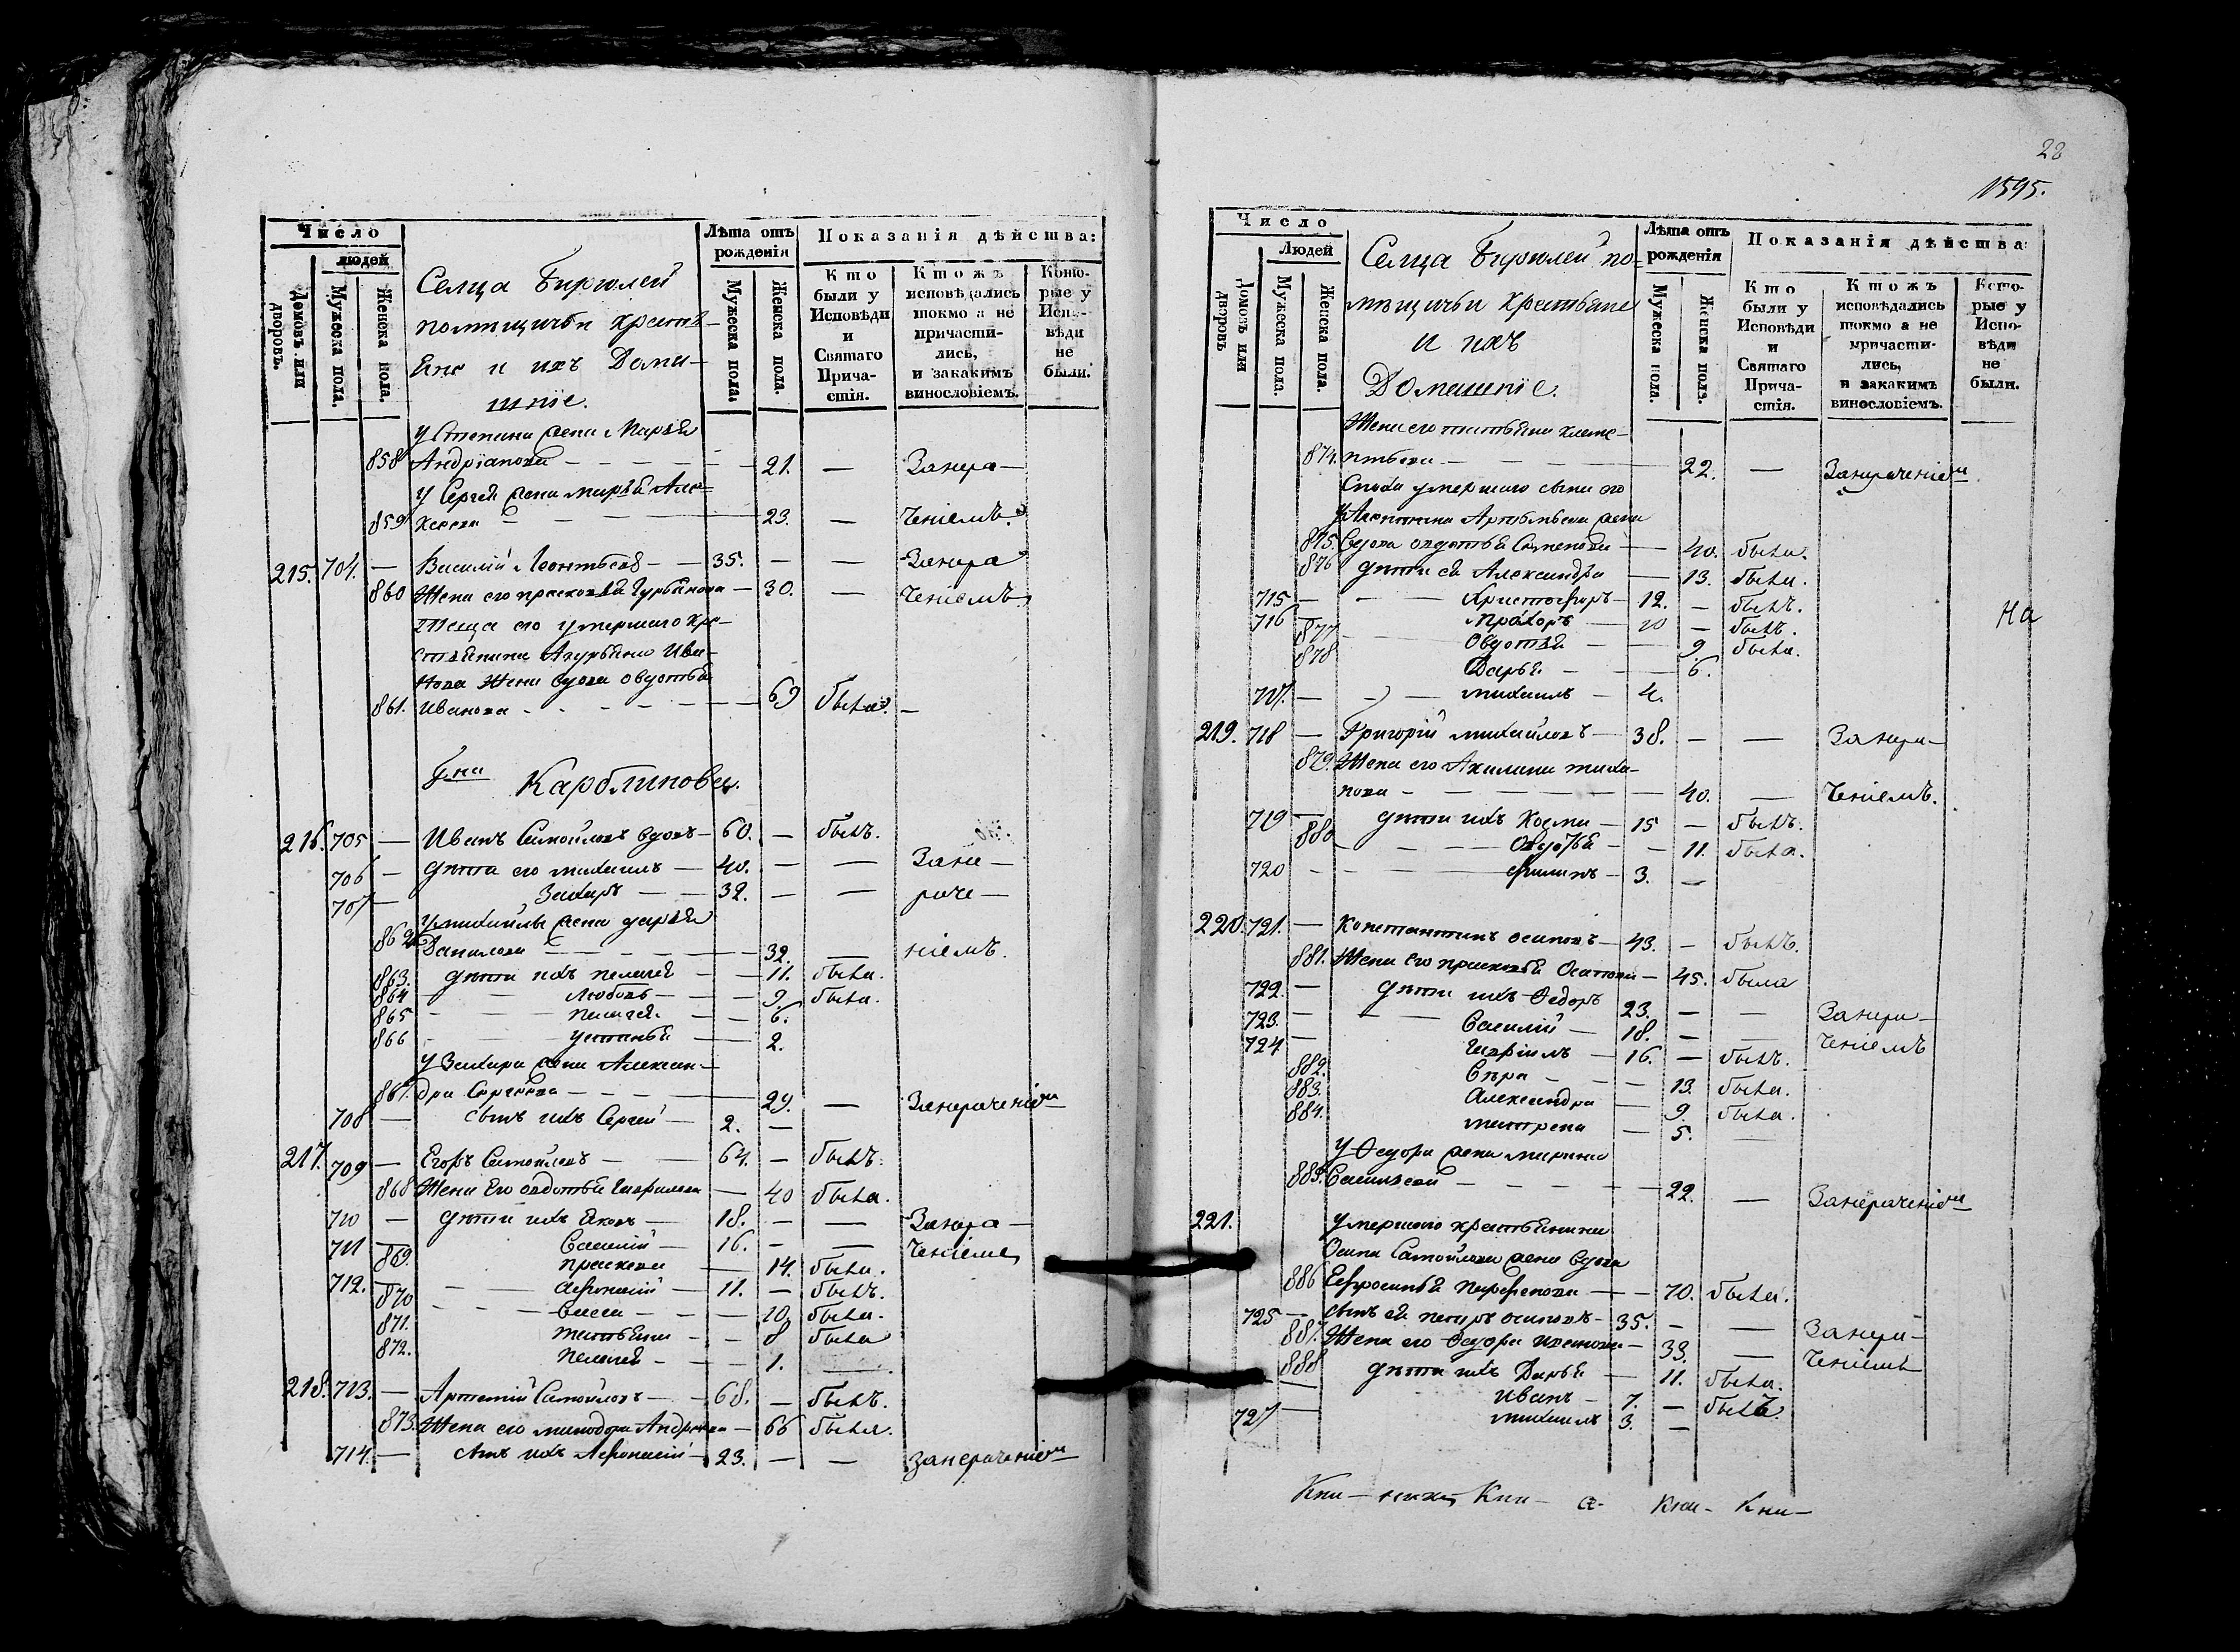 Число
людей
Домовъ или дворовъ.
Мужеска пола.
Женска пола.
Селца Бирюлей
помѣщичьи крестья-
не и ихъ Дома-
шніе.
Лѣта отъ рожденія
Мужеска пола.
Женска пола.
Показанія дѣйства:
Кто были у Исповѣди и Святаго Причастія.
Кто жъ исповѣдались токмо а не причастились, и за какимъ винословіемъ.
Которые у Исповѣди не были.
У Степана жена Марья
858 Андріанова — 21. — Занера-
У Сергея жена Марья Але-
859 ксеева — 23. — ченіемъ.
215. 704. — Василій Леонтьевъ — 35. — — Занера
860 Жена его Прасковья Гурьянова — 30. — ченіемъ
Теща его умершаго кре-
стьянина Ива-
нова жена вдова Овдотья
861. Иванова — 69 была. —
Гна
216. 705 — Иванъ Самойловъ вдовъ — 60. — былъ.
706 — дѣти его Михаилъ — 40. — — Зане-
707 — Захаръ — 32. — — раче-
У Михайлы жена Дарья
862 Данилова — 32. — ніемъ.
863. дѣти ихъ Пелагея — 11. была.
864 — Любовь — 9. была.
865 — Пелагея — 6.
866 — Устинья — 2.
У Захара жена Алексан-
867. дра Сергѣева — 29. — Занераченіемъ
708 — сынъ ихъ Сергей — 2. —
217. 709 — Егоръ Самойловъ — 64. — былъ.
868 Жена Его Овдотья Гаврилова — 40 была.
710 — дѣти ихъ Яковъ — 18. — — Занера-
711 — Василій — 16. — — ченіемъ
869. Прасковья — 14. была.
712. — Афонасій — 11. — былъ.
870 — — 10. была.
871. Татьяна — 8 была
872. Пелагея — 1. —
218. 713. — Артемій Самойловъ — 68. — былъ.
873. Жена его Минодора Андреева — 66 была.
714. — сынъ ихъ Афонасій — 23. — — занераченіемъ
28
1595.
Число
Людей
Домовъ или дворовъ
Мужеска пола.
Женска пола.
Селца Бирюлей по-
мѣщичьи крестьяне
и ихъ
Домашніе.
Лѣта отъ рожденія
Мужеска пола.
Женска пола.
Показанія дѣйства
Кто были у Исповѣди и Святаго Причастія.
Кто жъ исповѣдались токмо а не причастились, и за какимъ винословіемъ.
Которые у Исповѣди не были.
Жена его Татьяна Клеме-
874. нтьева — 22. — Занераченіемъ
Сноха умершаго сына его
Артемьева жена
875. вдова Овдотья Семенова — 40. была.
876 дѣти ея Александра — 13. была.
715 — Христофоръ — 12. — былъ.
716 — Прохоръ — 10 — былъ.
877 Овдотья — 9. была.
878 Дарья — 6.
717. — Михаилъ — 4.
На
219. 718 — Григорій Михайловъ — 38. — — Занера-
879. Жена его Акилина Тихо-
нова — 40. — ченіемъ.
719 — дѣти ихъ Косма — 15 — былъ.
880 — Овдотья — 11. была.
720 — Филипъ — 3. —
220. 721. — Константинъ Осиповъ — 43. — былъ.
881. Жена Его Прасковья — 45. была
722. — дѣти ихъ Федоръ 23. — — Занера-
723. — Василій — 18. — — ченіемъ
724 — Гавріилъ — 16. — былъ.
882. Вѣра — 13. была.
883. Александра — 9. была.
884. Матрена — 5. —
У Федора жена Марина
885. Васильева — 22. — Занераченіемъ
221. Умершаго крестьянина
Осипа Самойлова жена вдова
886 Ефросинья Парфенова — 70. была.
725 — сынъ ея Петръ Осиповъ — 35. — — Занера-
887. Жена его Федора Иванова — 33. — ченіемъ
888 дѣти ихъ Дарья — 11. была.
— Иванъ — 7. — былъ.
727 — Михаилъ 3. —